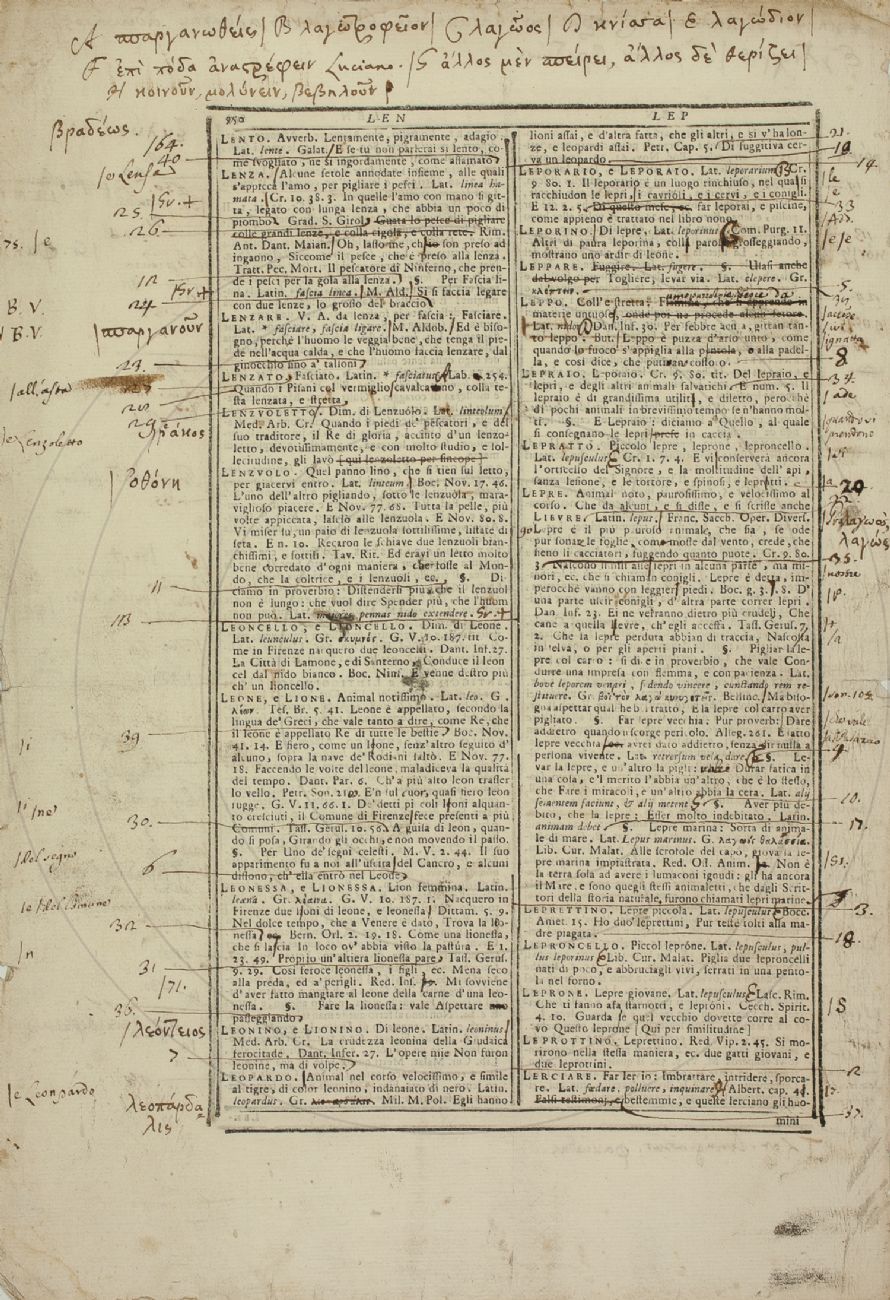 Α σπαργανωθείς | Β λαγωτροφεῖον | C λαγῶος | D κνίσσα | E λαγώδιον |
F ἐπὶ πόδα ἀναστρέφειν Luciano. | G ἄλλος μὲν σπείρει, ἄλλος δὲ θερίζει |
H κοινοῦν, μολύνειν, βεβηλοῦν |
950 LEN LEP
βραδέως.
164.
40
25.
26
12
24
B. V
B. V.
σπαργανοῦν
23
28
29
ὀθόνη
11
113
39
30.
del segno
6
32
31
171.
36.
λεόντειος
7
le Leonpardo
λεοπάρδα
λις
LENTO. Avverb. Lentamente, pigramente, adagio.
Lat. lente. Galat. E se tu non parlerai sì lento, co-
me svogliato, nè sì ingordamente, come affamato
LENZA. Alcune setole annodate insieme, alle quali
s'appicca l'amo, per pigliare i pesci. Lat. linea ha-
mata. Cr. 10. 38. 3. In quelle l'amo con mano si git-
ta, legato con lunga lenza, che abbia un poco di
piombo. Grad. S. Girol. Gusta lo pesce di pigliare
colle grandi lenze, e colla cigola, e colla rete. Rim.
Ant. Dant. Maian. Oh, lasso me, ch'io son preso ad
inganno, Siccome il pesce, che è preso alla lenza.
Tratt. Pec. Mort. Il pescatore di Ninferno, che pren-
de i pesci per la gola alla lenza. §. Per Fascia li-
na. Latin. fascia linea. M. Ald. Si si faccia legare
con due lenze, lo grosso del braccio.
LENZARE. V. A. da lenza, per fascia: Fasciare.
Lat. * fasciare, fascia ligare. M. Aldob. Ed è biso-
gno, perchè l'huomo le veggia bene, che tenga il pie-
de nell'acqua calda, e che l'huomo faccia lenzare, dal
ginocchio fino a' talloni
LENZATO. Fasciato. Latin. * fasciatus. Lab. 254.
Quando i Pisani col vermiglio cavalcarono, colla te-
sta lenzata, e stretta.
LENZVOLETTO. Dim. di Lenzuolo. Lat. linteolum.
Med. Arb. Cr. Quando i piedi de' pescatori, e del
suo traditore, il Re di gloria, accinto d'un lenzo-
letto, devotissimente, e con molto studio, e sol-
lecitudine, gli lavò [qui lenzoletto per sincope]
LENZVOLO. Quel panno lino, che si tien sul letto,
per giacervi entro. Lat. linteum. Boc. Nov. 17. 46.
L'uno dell'altro pigliando, sotto le lenzuola, mara-
viglioso piacere. E Nov. 77. 68. Tutta la pelle, più
volte appiccata, lasciò alle lenzuola. E Nov. 80. 8.
Vi miser su, un paio di lenzuola sottilissime, listate di
seta. E n. 10. Recaron le schiave due lenzuoli bian-
chissimi, e sottili. Tav. Rit. Ed eravi un letto molto
bene corredato d'ogni maniera, che fosse al Mon-
do, che la coltrice, e i lenzuoli, ec. §. Di-
ciamo in proverbio: Distendersi più che il lenzuol
non è lungo: che vuol dire Spender più, che l'huom
non può. Lat. maiores pennas nido extendere.
LEONCELLO, e LIONCELLO. Dim. di Leone.
Lat. leunculus. Gr. σκυμνός. G. V. 10. 187. tit Co-
me in Firenze nacquero due leoncelli. Dant. Inf. 27.
La Città di Lamone, e di Santerno, Conduce il leon
cel dal nido bianco. Boc. Ninf. E venne destro più
ch' un lioncello.
LEONE, e LIONE. Animal notissimo. Lat. leo. G.
λέων. Tes. Br. 5. 41. Leone è appellato, secondo la
lingua de' Greci, che vale tanto a dire, come Re, che
il leone è appellato Re di tutte le bestie. Boc. Nov.
41. 14. E fiero, come un lione, senz'altro seguito d'
alcuno, sopra la nave de' Rodiani saltò. E Nov. 77.
18. Faccendo le volte del leone, maladiceva la qualità
del tempo. Dant. Par. 6. Ch'a più alto leon trasser
lo vello. Petr. Son. 219. E'n sul cuor, quasi fiero leon
rugge. G. V. 11. 66. 1. De' detti piccoli lioni alquan-
to cresciuti, il Comune di Firenze fece presenti a più
Comuni. Tass. Gerus. 10. 56. A guisa di leon, quan-
do si posa, Girando gli occhi, e non movendo il passo.
§. Per Uno de' segni celesti. M. V. 2. 44. Il suo
apparimento fu a noi all'uscita del Cancro, e alcuni
dissono, ch'ella entrò nel Leone.
LEONESSA, e LIONESSA. Lion femmina. Latin.
leæna. Gr. λέαινα. G. V. 10. 187. 1. Nacquero in
Firenze due lioni di leone, e leonessa. Dittam. 5. 9.
Nel dolce tempo, che a Venere è dato, Trova la lio-
nessa. Bern. Orl. 2. 19. 18. Come una lionessa,
che si lascia In loco ov'abbia visto la pastura. E 1.
23. 49. Proprio un'altiera lionessa pare. Tass. Gerus.
9. 29. Così feroce leonessa, i figli, ec. Mena seco
alla preda, ed a' perigli. Red. Ins. Mi sovviene
d'aver fatto mangiare al leone della carne d'una leo-
nessa. §. Fare la lionessa: vale Aspettare
passeggiando
LEONINO, e LIONINO. Di leone. Latin. leoninus.
Med. Arb. Cr. La crudezza leonina della Giudaica
ferocitade. Dant. Infer. 27. L'opere mie Non furon
leonine, ma di volpe.
LEOPARDO. Animal nel corso velocissimo, e simile
al tigre, di color leonino, indanaiato di nero. Latin.
leopardus. Gr. λεοπάρδαλις. Mil. M. Pol. Egli hanno
lioni assai, e d'altra fatta, che gli altri, e sì v'ha lon-
ze, e leopardi assai. Petr. Cap. 5. Di fuggitiva cer-
va un leopardo
LEPORARIO, e LEPORAIO. Lat. leporarium. Cr.
9. 80. 1. Il leporario è un luogo rinchiuso, nel qua si
racchiudon le lepri, i cavrioli, e i cervi, e i conigli.
E 12. 2. 5. Di questo mese, ec. far leporai, e piscine,
come appieno è trattato nel libro nono.
LEPORINO. Di lepre. Lat. leporinus. Com. Purg. 11.
Altri di paura leporina, colli parol grosseggiando,
mostrano ardir di leone.
LEPPARE. Fuggire. Lat. fugere. §. Usasi anche
dal volgo per Togliere, levar via. Lat. clepere. Gr.
κλέπτειν.
LEPPO. Coll'e stretta. Fiamma, che s'apprende in
materie untuose, onde poi ne procede alcun fetore.
Lat. nidor. Dan. Inf. 30. Per febbre acuta, gittan tan-
to leppo. But. Leppo è puzza d'arso unto, come
quando lo fuoco s'appiglia alla pentola, o alla padel-
la, e così dice, che putivan costoro.
LEPRAIO. Leporaio. Cr. 9. 80. tit. Del lepraio, e
lepri, e degli altri animali salvatichi. E num. 5. Il
lepraio è di grandissima utilità, e diletto, perocchè
di pochi animali in brevissimo tempo se n'hanno mol-
ti. §. E Lepraio: diciamo a Quello, al quale
si consegnano le lepri prese in caccia.
LEPRATTO. Piccolo lepre, leprone, leproncello.
Lat. lepusculus. Cr. 1. 7. 4. E vi conserverà ancora
l'orticello del Signore, e la moltitudine dell'api,
sanza lesione, e le tortore, e spinosi, e lepratti.
LEPRE. Animal noto, paurosissimo, e velocissimo al
corso. Che da alcuni, e si disse, e si scrisse anche
LIEVRE. Latin. lepus. Franc. Sacch. Oper. Divers.
Lepre è il più pauroso animale, che sia, se ode
pur sonare le foglie, come mosse dal vento, crede, che
sieno li cacciatori, fuggendo quanto puote. Cr. 9. 80.
3. Nascono simil alle lepri in alcuna parte, ma mi-
nori, ec. che si chiaman conigli. Lepre è detta, im-
perocchè vanno con leggier piedi. Boc. g. 3. f. 8. D'
una parte uscir conigli, d'altra parte correr lepri.
Dan. Inf. 23. Ei ne verranno dietro più crudeli, Che
cane a quella levre, ch'egli acceffa. Tass. Gerus. 7.
2. Che la lepre perduta abbian di traccia, Nascosta
in selva, o per gli aperti piani. §. Pigliar la le-
pre col carro: si dice in proverbio, che vale Con-
durre una impresa con flemma, e con pazienza. Lat.
bove leporem venari, sedendo vincere, cunctando rem re-
stituere. Gr. βοΐ τὸν λαγὼ κυνηγετεῖν. Bellinc. Ma biso-
gna aspettar qualche bel tratto, E la lepre col carro aver
pigliato. §. Far lepre vecchia: Pur proverb: Dare
addietro quando si scorge pericolo. Alleg. 261. E fatto
lepre vecchia avrei dato addietro, senza dir nulla a
persona vivente. Lat. retrorsum vela dare. §. Le-
var la lepre, e un'altro la pigli: vale Durar fatica in
una cosa, e'l merito l'abbia un'altro, che è lo stesso,
che Fare i miracoli, e un'altro abbia la cera. Lat. alij
sementem faciunt, & alij metent. §. Aver più de-
bito, che la lepre: Esser molto indebitato. Latin.
animam debet. §. Lepre marina: Sorta di anima-
le di mare. Lat. Lepus marinus. G. λαγωὸς θαλάσσιος.
Lib. Cur. Malat. Alle scrofole del capo, giova la le-
pre marina impiastrata. Red. Oss. Anim. Non è
la terra sola ad avere i lumaconi ignudi: gli ha ancora
il Mare, e sono quegli stessi animaletti, che dagli Scrit-
tori della storia naturale, furono chiamati lepri marine
LEPRETTINO. Lepre piccola. Lat. lepusculus. Bocc.
Amet. 15. Ho duo' leprettini, Pur testè tolti alla ma-
dre piagata.
LEPRONCELLO. Piccol leprone. Lat. lepusculus, pul-
lus leporinus. Lib. Cur. Malat. Piglia due leproncelli
nati di poco, e abbruciagli vivi, serrati in una pento-
la nel forno.
LEPRONE. Lepre giovane. Lat. lepusculus. Lasc. Rim.
Che ti fanno assa starnotti, e leproni. Cecch. Spirit.
4. 10. Guarda se quel vecchio dovette corre al co-
vo Questo leprone [Qui per similitudine]
LEPROTTINO. Leprettino. Red. Vip. 2. 45. Si mo-
rirono nella stessa maniera, ec. due gatti giovani, e
due leprottini.
LERCIARE. Far lercio: Imbrattare, intridere, sporca-
re. Lat. fœdare, polluere, inquinare. Albert. cap. 41.
Falsi testimonj, e bestemmie, e queste lerciano gli huo-
mini
21.
19
14.
33
5.
8
34.
20
λαγῶς
35.
4
10.
17.
181.
3.
18.
18
2
37.